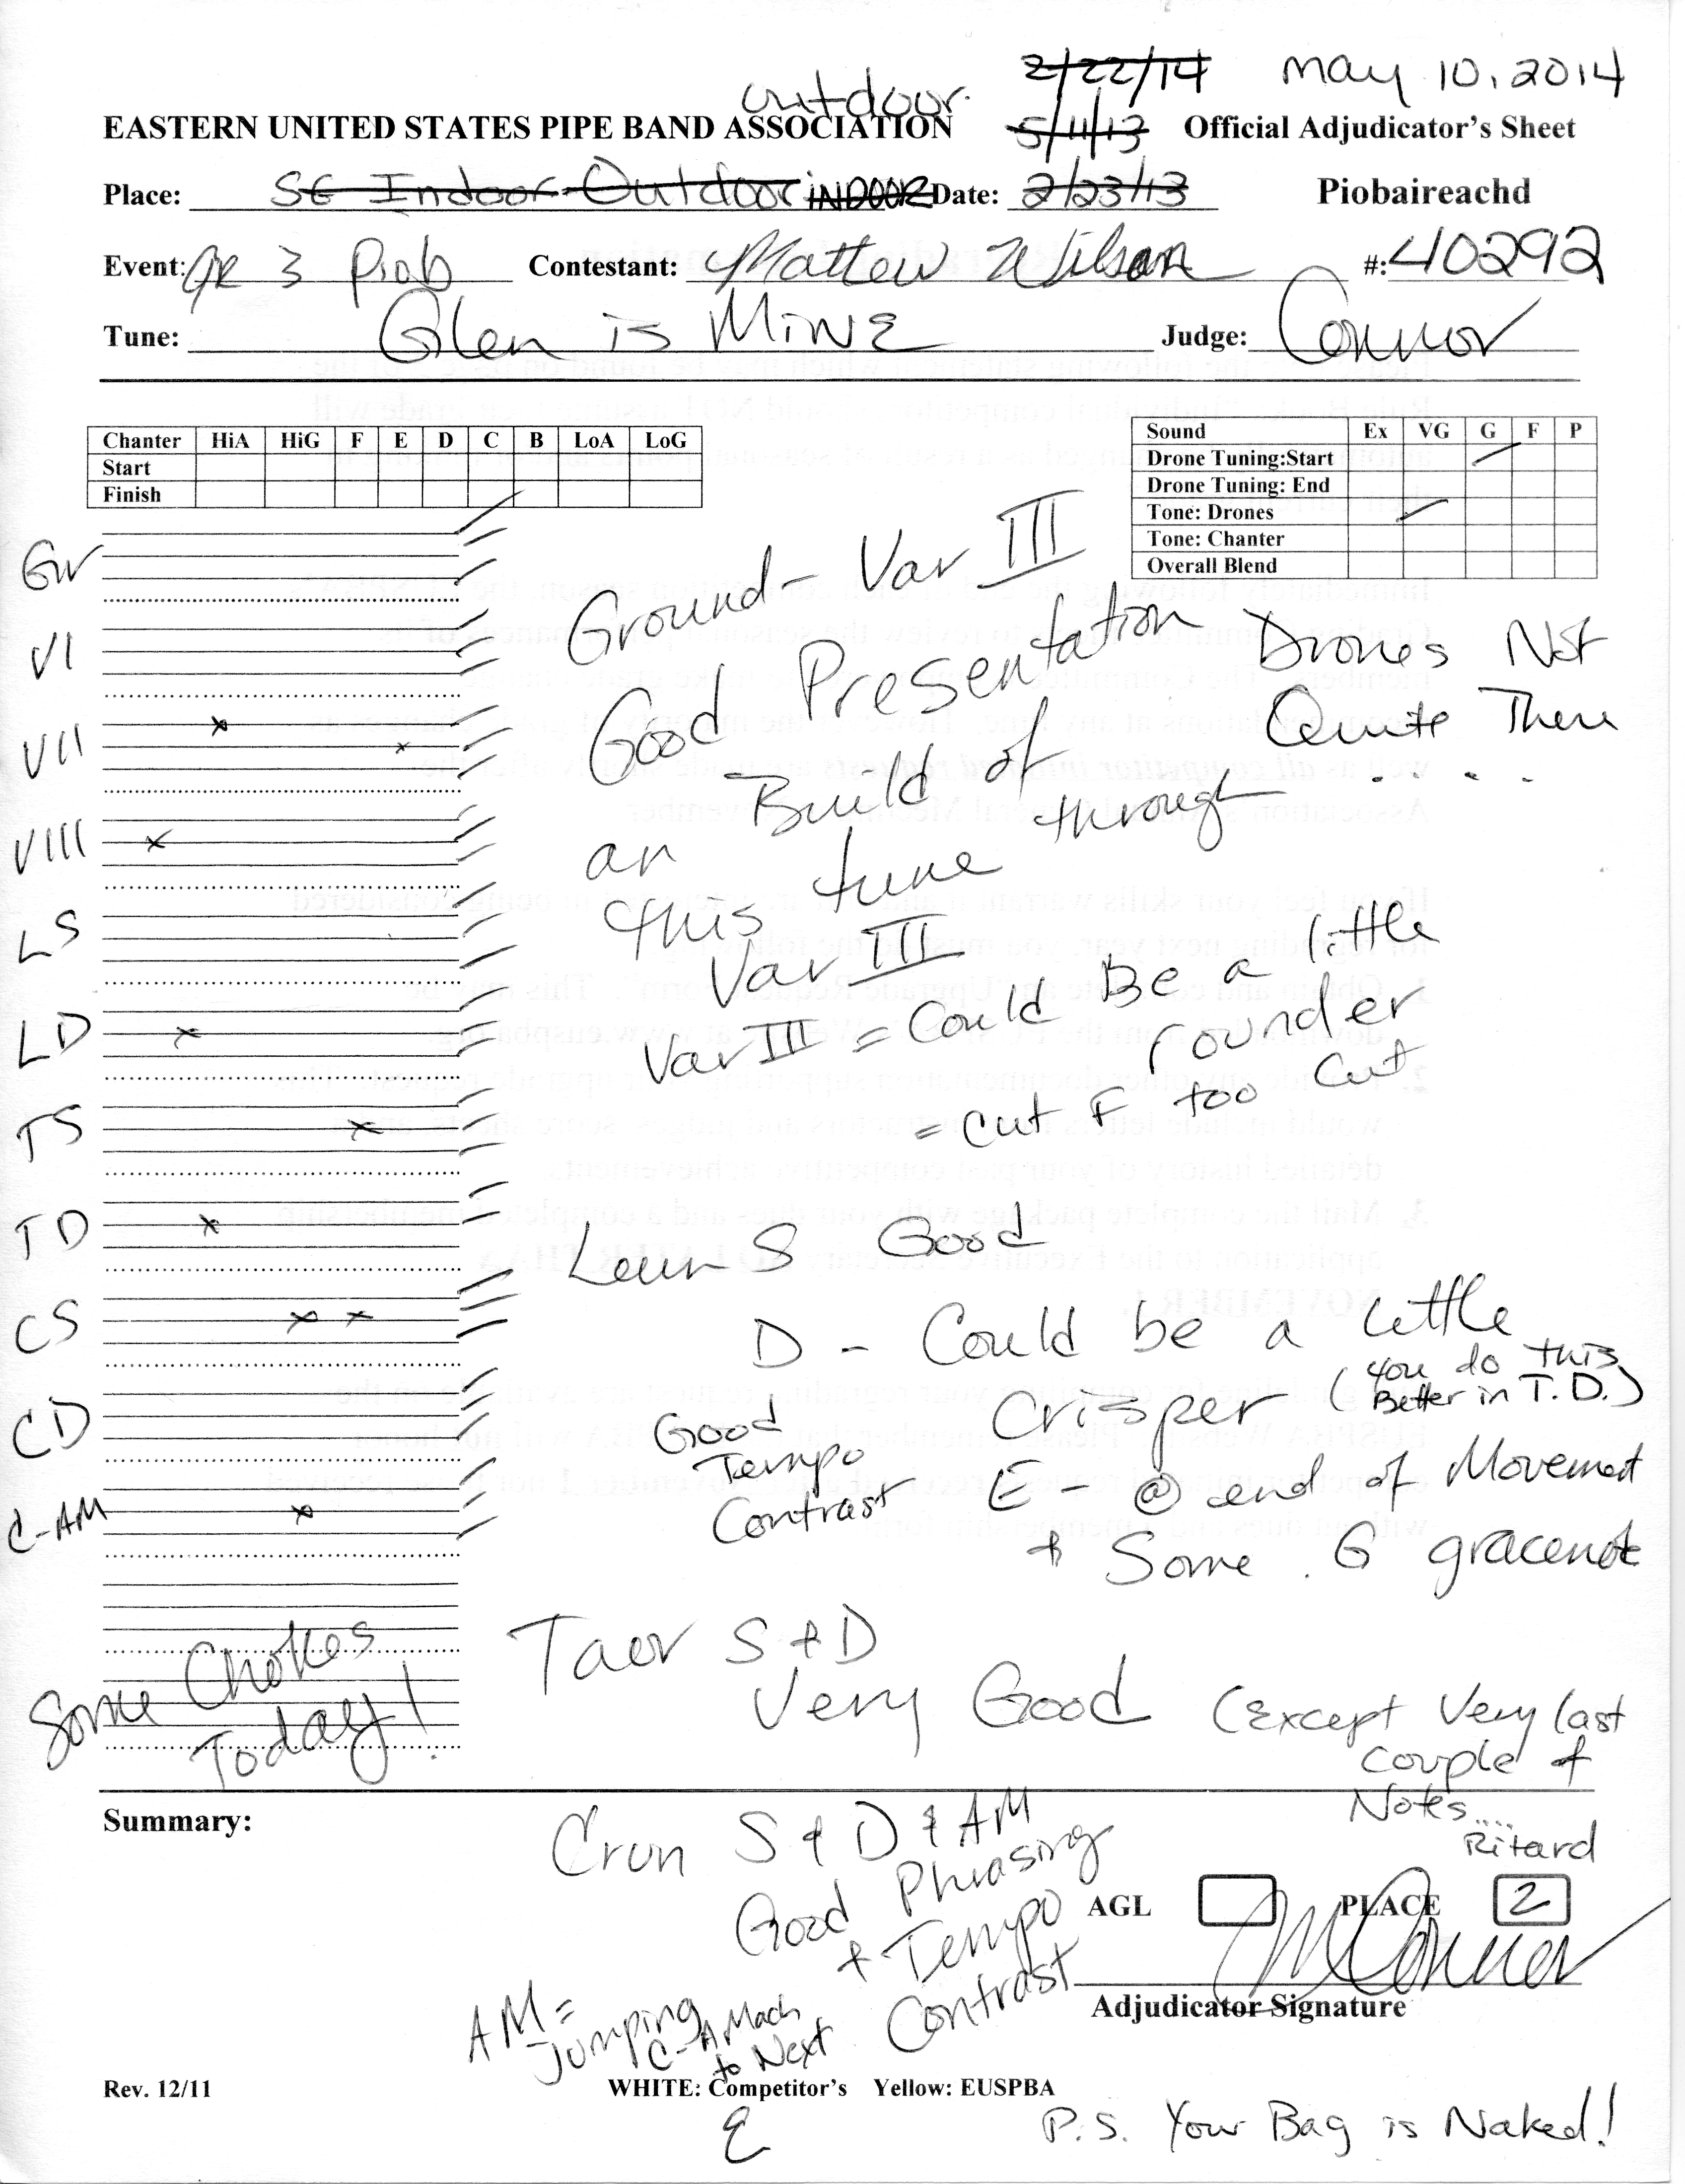 outdoor. 2/22/14 May 10, 2014
EASTERN UNITED STATES PIPE BAND ASSOCIATION 5/11/13 Official Adjudicator's Sheet
Place: SE Indoor Outdoor INDOOR Date: 2/23/13 Piobaireachd
Event: GR 3 Piob Contestant: Mattew Wilson #: 40292
Tune: Glen is MiNE Judge: Connor
Chanter HiA HiG F E D C B LoA LoG
Start
Finish
Sound Ex VG G F P
Drone Tuning:Start
Drone Tuning: End
Tone: Drones
Tone: Chanter
Overall Blend
Gr
VI
VII
VIII
LS
LD
TS
TD
CS
CD
C-AM
Some Chokes
Today!
Ground - Var III
Good Presentation
Build of
an through
this tune
Var III
Drones Not
Quite There
. . . .
Var III = Could Be a little
rounder
= cut F too cut
Leum S Good
D - Could be a little
Crisper (you do this
Better in T.D.)
Good
Tempo
Contrast
E - @ end of Movement
+ Some G gracenote
Taor S + D
Very Good (Except Very last
couple of
Notes....
Ritard
Summary:
Crun S & D & AM
Good Phrasing
+ Tempo
Contrast
AGL PLACE 2
MConnor
Adjudicator Signature
AM =
Jumping
C-A Mach
to Next
E
Rev. 12/11 WHITE: Competitor's Yellow: EUSPBA
P.S. Your Bag is Naked!